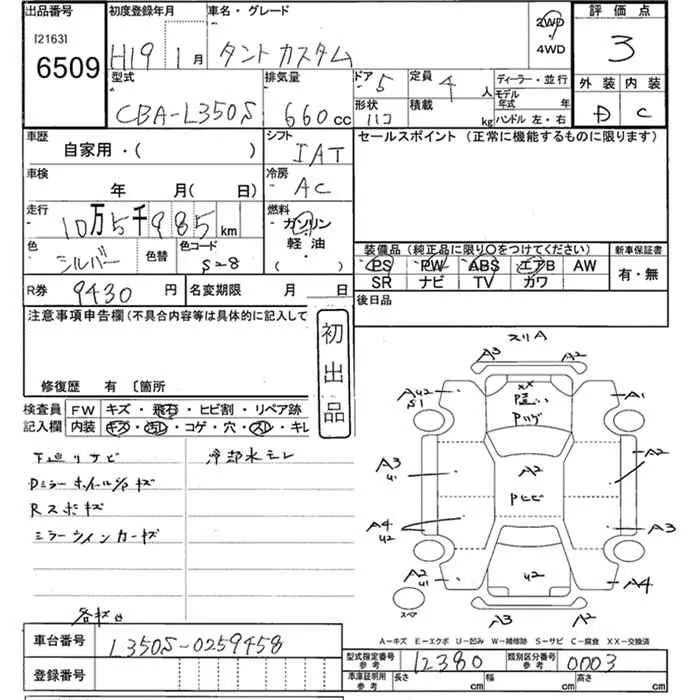 出品番号 初度登録年月 車名・グレード 評価点
[2163]
6509
H19 1月 タントカスタム
2WD
4WD
3
型式 排気量 ドア 5 定員 4人 ディーラー・並行
モデル年式 年
外装 内装
CBA-L350S 660cc
形状 ハコ 積載 kg ハンドル 左・右
D C
車歴 自家用・( )
シフト IAT
セールスポイント (正常に機能するものに限ります)
車検 年 月( 日)
冷房 AC
走行 10万5千985km
燃料 ガソリン
軽油・
( )
色 シルバー 色替 色コード S28
装備品 (純正品に限り○をつけてください) 新車保証書
PS PW ABS エアB AW 有・無
SR ナビ TV カワ
R券 9430円 名変期限 月 日
後日品
注意事項申告欄 (不具合内容等は具体的に記入して
初出品
修復歴 有 〔箇所
検査員 FW キズ・飛石・ヒビ割・リペア跡
記入欄 内装 キズ・汚レ・コゲ・穴・スレ・キレ
下廻リサビ 冷却水モレ
Dミラー ホイールC/S キズ
Rスポキズ
ミラーウインカーキズ
各キズ凹
スリA
A3 A2
AU2 S1 XX P違い A1
Pハゲ
A3 U1 A2 A2
PヒビA4 U2 A3
A2 U1 U2 A4
スペア
A3 A2
A-キズ E-エクボ U-凹み W-補修跡 S-サビ C-腐食 XX-交換済
車台番号 L350S-0259458
型式指定番号 参考 12380 類別区分番号 参考 0003
登録番号
車庫証明用 参考 長さ cm 幅 cm 高さ cm